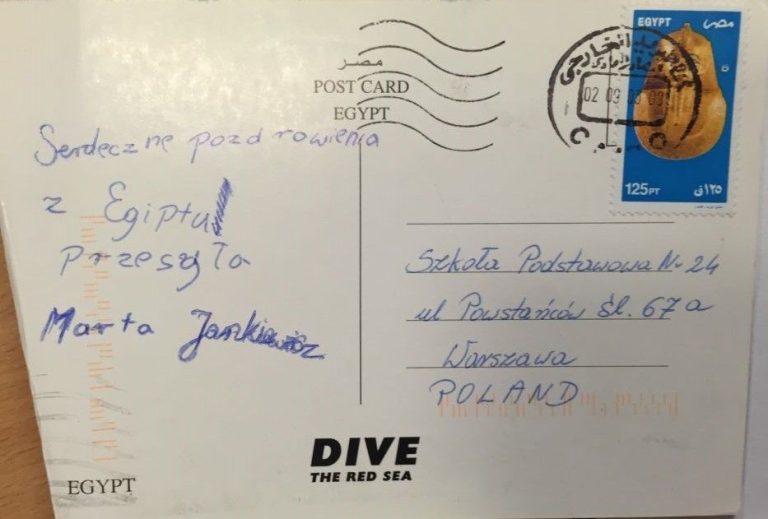 EGYPT مصر
125PT ١٢٥ق
مصر
POST CARD
EGYPT
Serdeczne pozdrowienia
z Egiptu
przesyła
Marta Jankiewicz
Szkoła Podstawowa Nr 24
ul Powstańców Śl. 67a
Warszawa
POLAND
DIVE
THE RED SEA
EGYPT